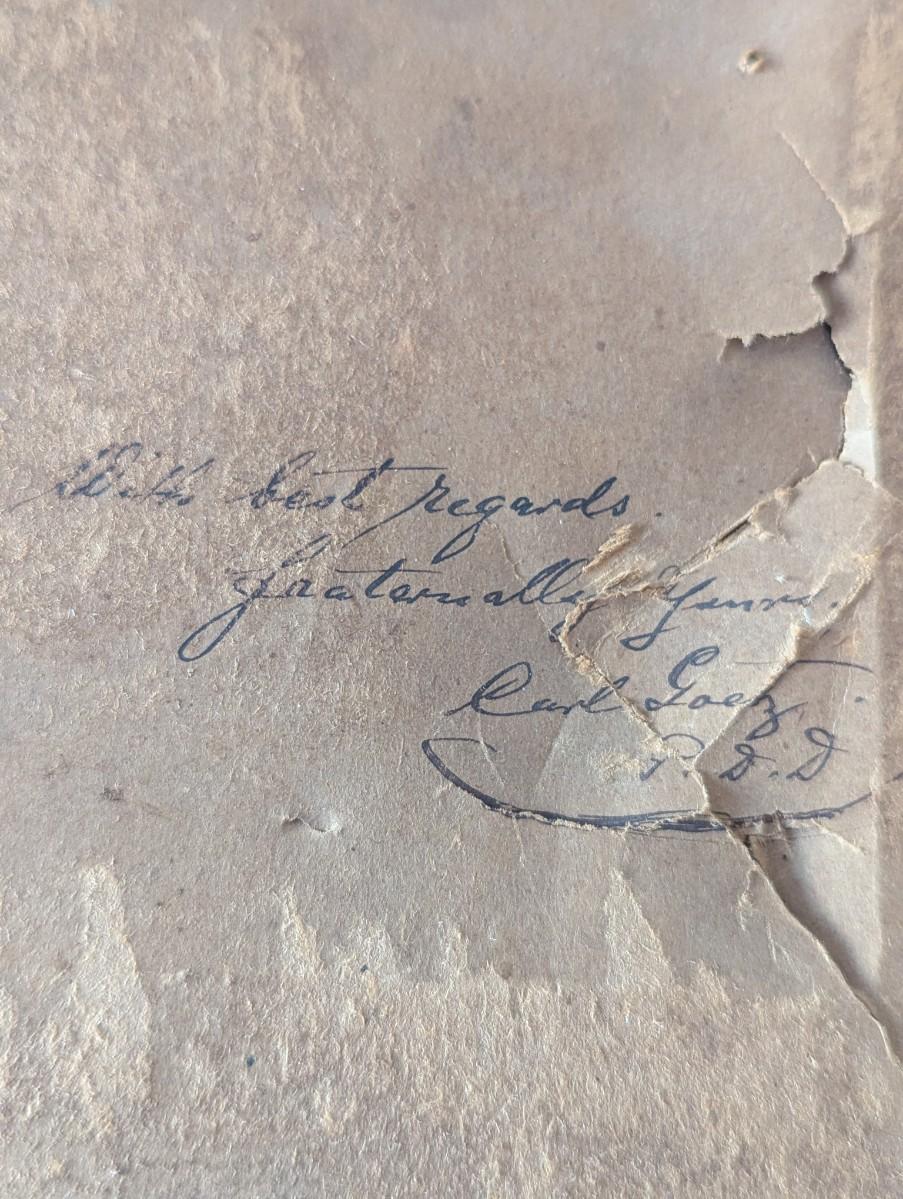 With best regards.
Fraternally Yours.
Carl Goetz.
P.D.D